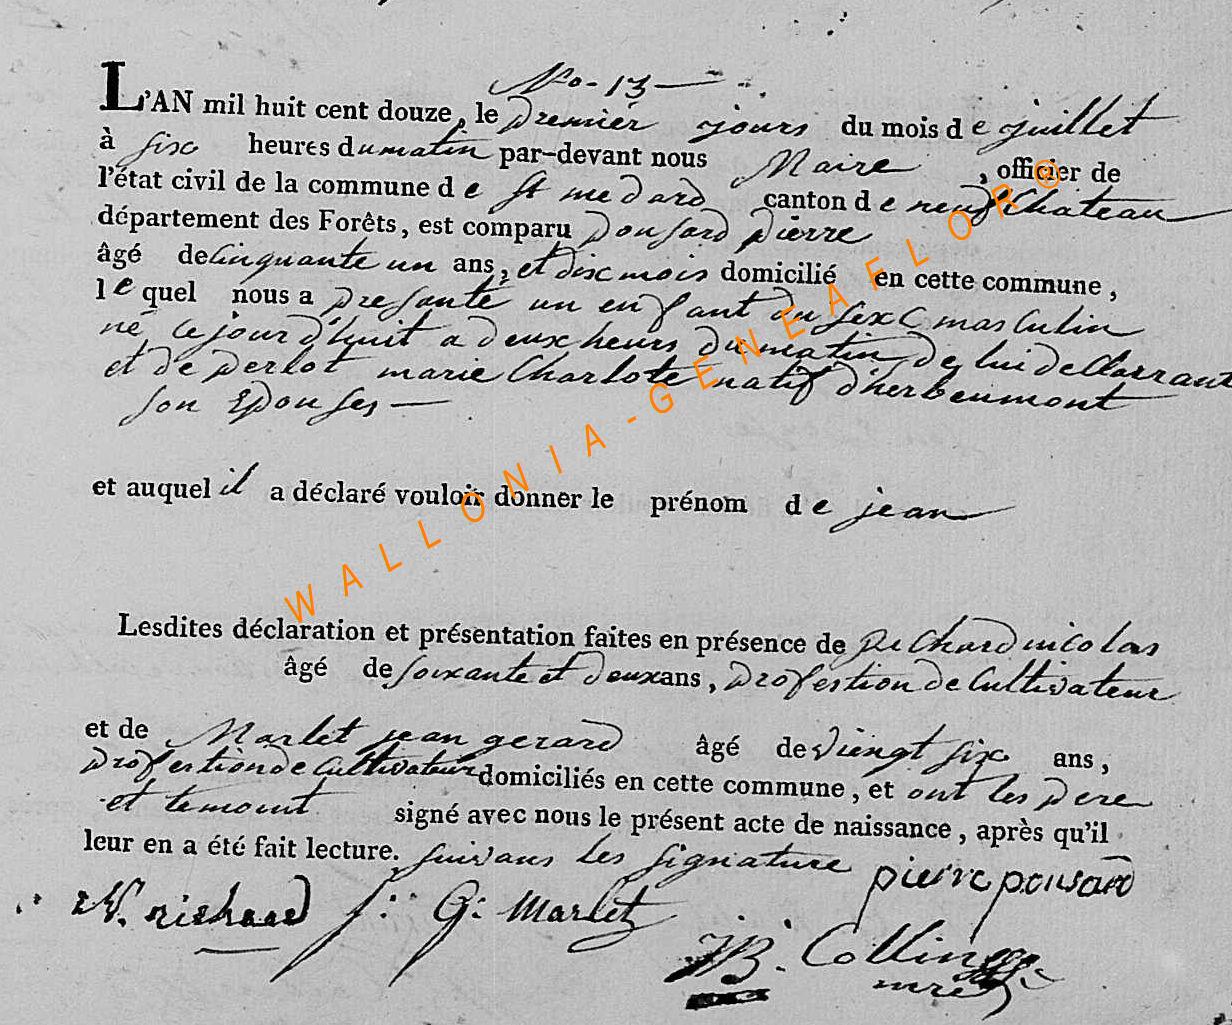 No - 13 -
L'AN mil huit cent douze, le premier jours du mois de juillet
à six heures du matin par-devant nous Maire, officier de
l'état civil de la commune de St medard canton de neufChateau
département des Forêts, est comparu Ponsard pierre
âgé de Cinquante un ans, et dix mois domicilié en cette commune,
lequel nous a presanté un enfant du sixC masculin
né ce jour d'huit a deux heurs du matin, de lui deClarrant
et de perlot marie Charlote natif d'herbeumont
son Epouses -
et auquel il a déclaré vouloir donner le prénom de jean
Lesdites déclaration et présentation faites en présence de richard nicolas
âgé de soixante et deux ans, profestion de Cultivateur
et de Marlet jean gerard âgé de viengt six ans,
profestion de Cultivateur domiciliés en cette commune, et ont les pere
et temoint signé avec nous le présent acte de naissance, après qu'il
leur en a été fait lecture. suivans les signature pierre ponsard
N. richard J: G: Marlet
JB. Collin
mre
WALLONIA-GENEAFLOR®